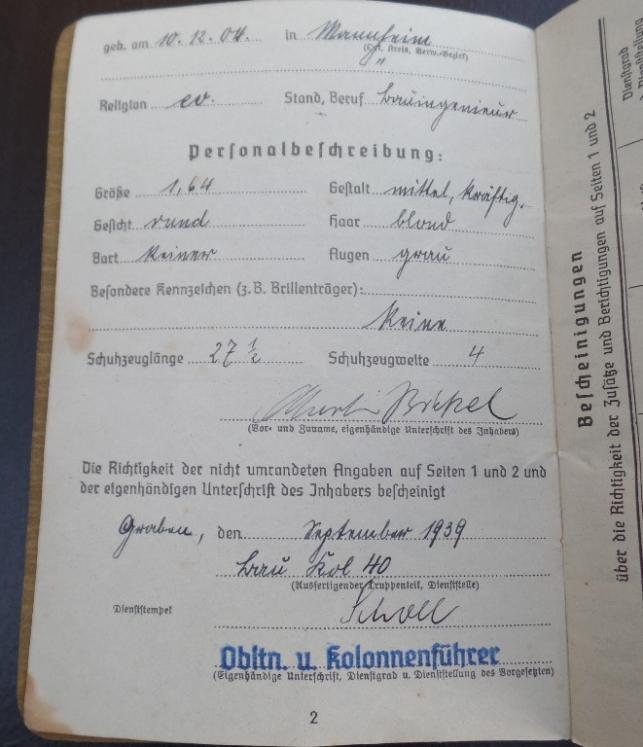 geb. am 10. 12. 04. in Mannheim
(Ort, Kreis, Verw.-Bezirk)
"
Religion ev. Stand, Beruf Bauingenieur
Personalbeschreibung:
Größe 1,64 Gestalt mittel, kräftig.
Gesicht rund Haar blond
Bart keiner Augen grau
Besondere Kennzeichen (z.B. Brillenträger):
keine
Schuhzeuglänge 27 ½ Schuhzeugweite 4
Martin
(Vor- und Zuname, eigenhändige Unterschrift des Inhabers)
Die Richtigkeit der nicht umrandeten Angaben auf Seiten 1 und 2 und
der eigenhändigen Unterschrift des Inhabers bescheinigt
Graben, den September 1939
Bau Kol 40
(Ausfertigender Truppenteil, Dienststelle)
Dienststempel Scholl
Obltn. u. Kolonnenführer
(Eigenhändige Unterschrift, Dienstgrad u. Dienststellung des Vorgesetzten)
2
Bescheinigungen
über die Richtigkeit der Zusätze und Berichtigungen auf Seiten 1 und 2
Dienstgrad